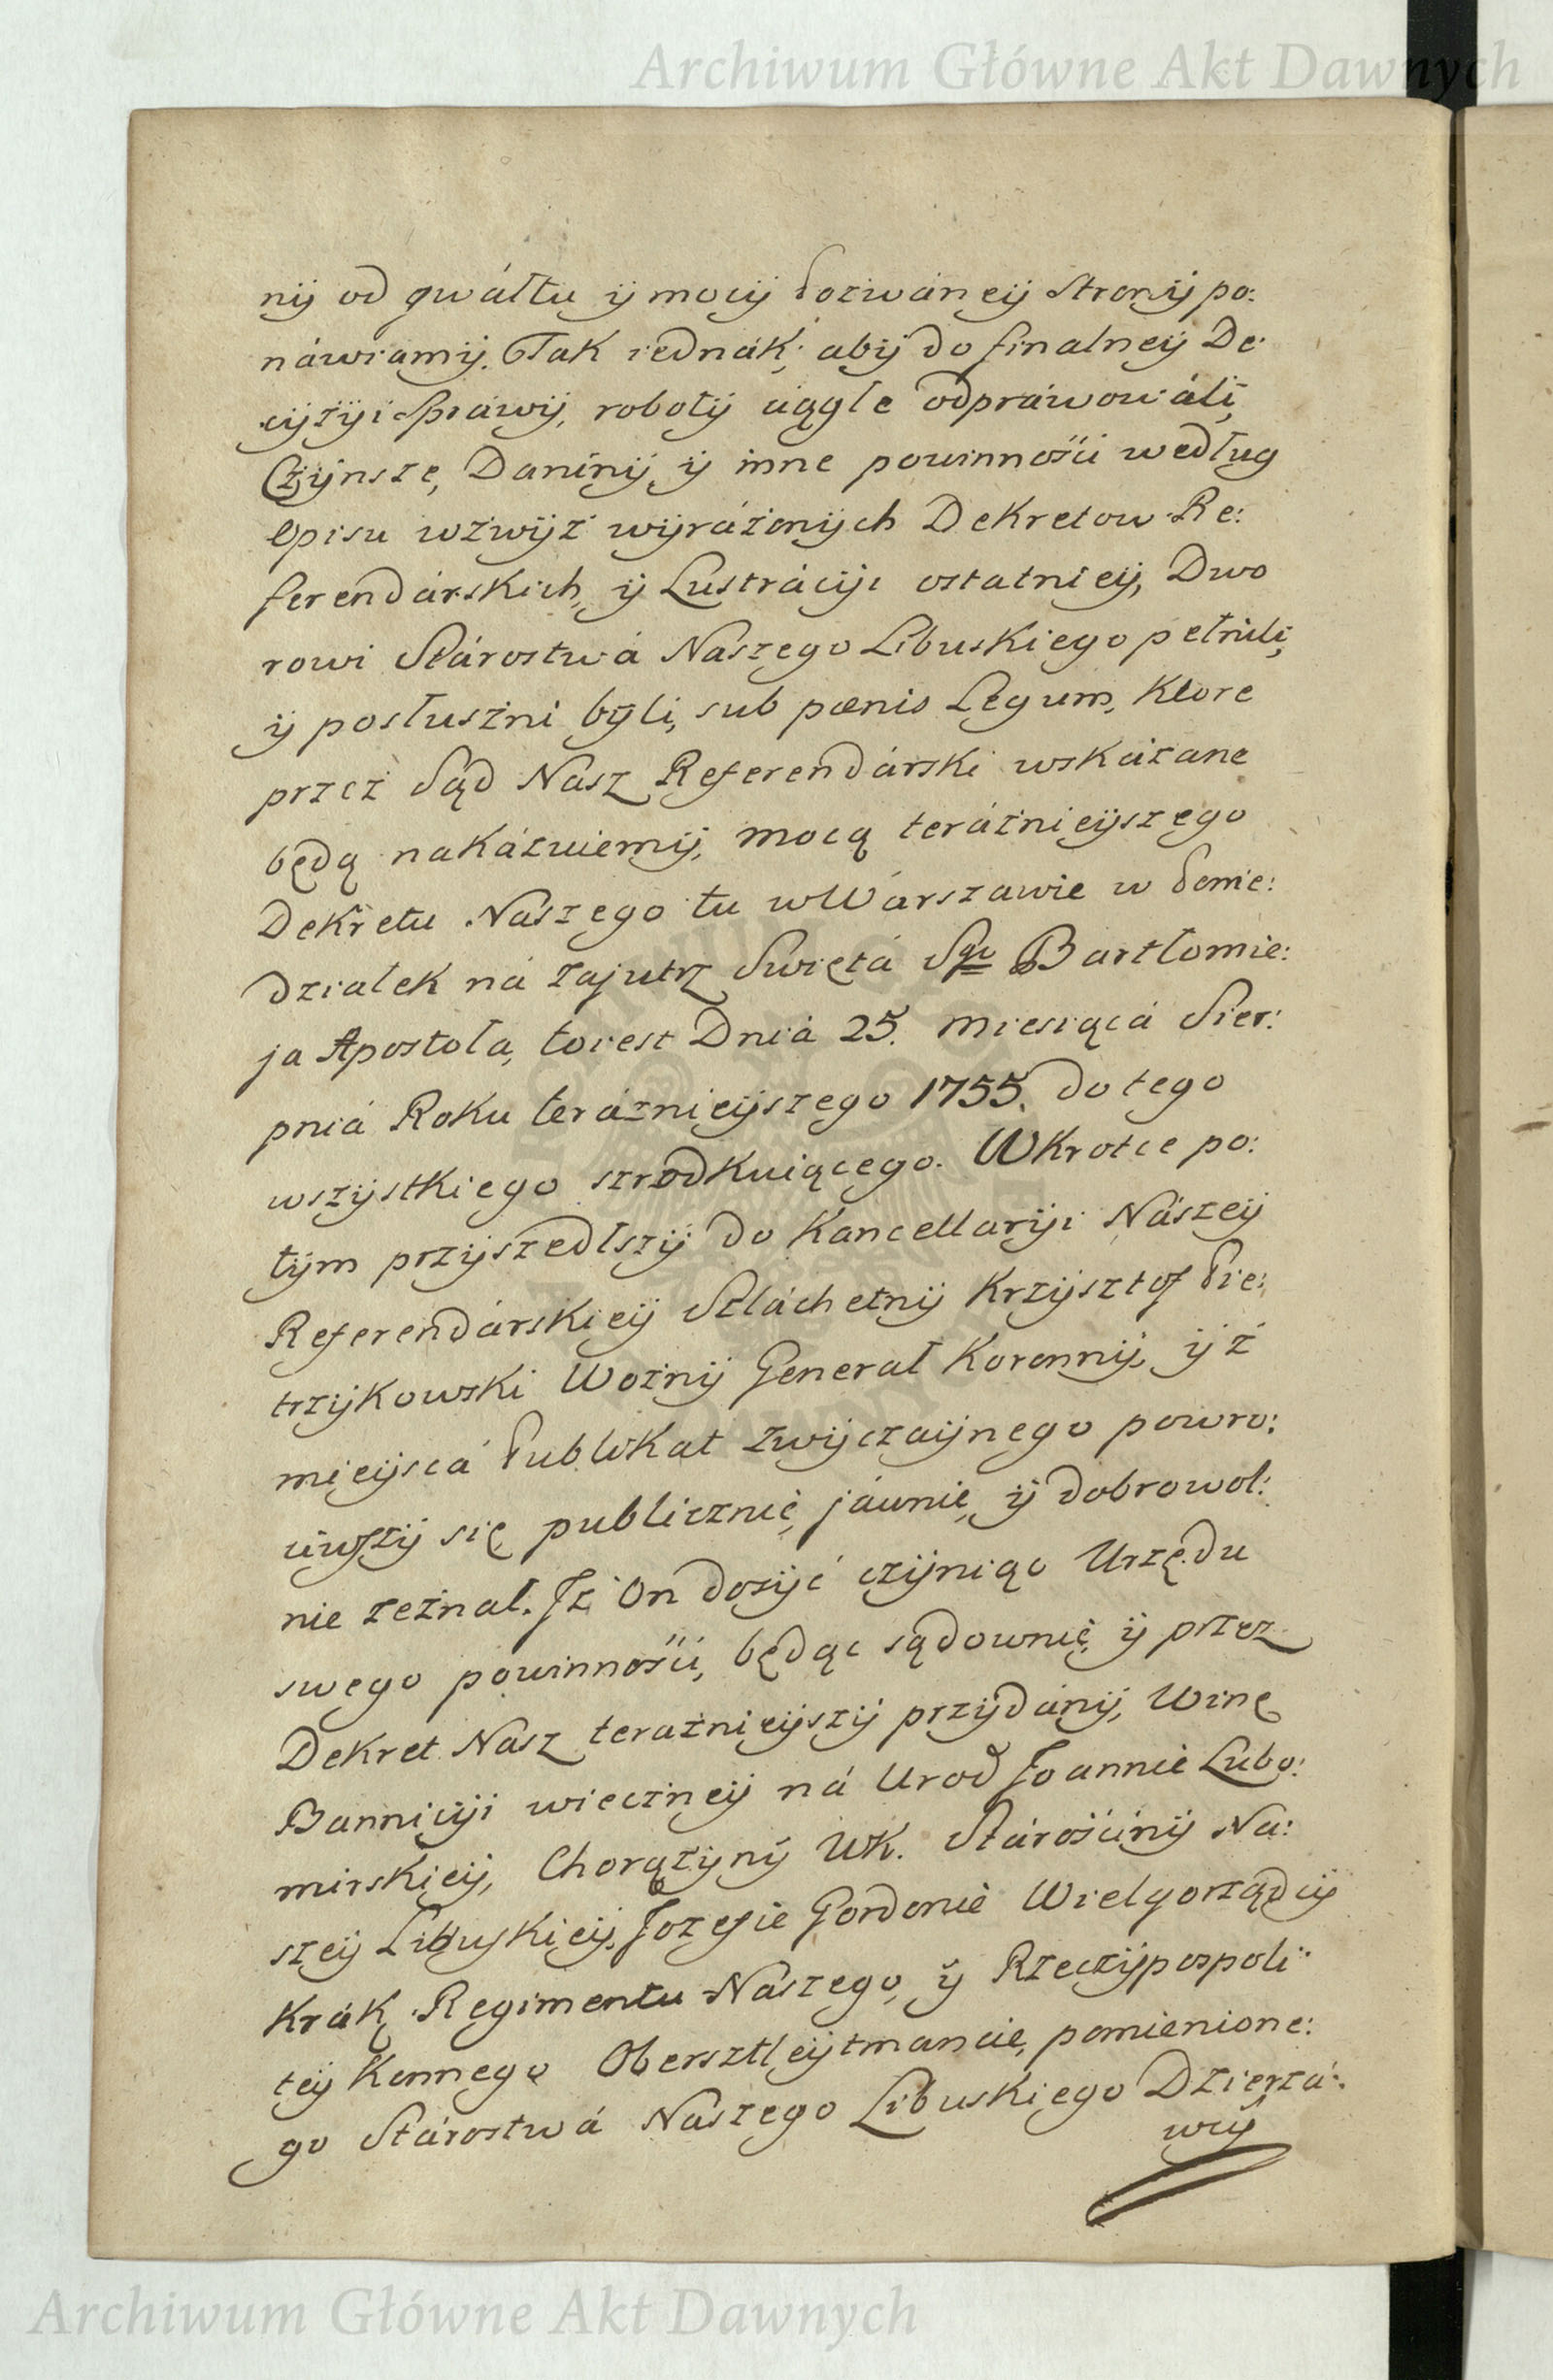 Archiwum Główne Akt Dawnych
nij od gwáłtu ij mocij Pozwáneij Stronij po:
náwiamij. Tak iednák, abij do finalneij De:
cijzij i Spráwij, robotij ciągle odpráwowáli,
Czijnsze, Daninij, ij inne powinności według
Opisu wzwijż wijráżonijch Dekretow Re:
ferendárskich, ij Lustráciji ostatnieij, Dwo
rowi Stárostwá Naszego Libuskiego pełnili,
ij posłuszni bÿli, sub pœnis Legum, Ktore
przez Sąd Nasz Referendárski wskázane
będą nakázuiemij, mocą teráźnieijszego
Dekretu Naszego tu w Wárszawie w Ponie:
działek ná zajutrz Swiętá Sgo Bartłomie:
ja Apostoła, to iest Dniá 25. Miesiącá Sier:
pniá Roku teráźnieijszego 1755. do tego
wszijstkiego szrodkuiącego. Wkrotce po:
tijm przijszedłszij do Kancellariji Nászeij
Referendárskieij Szláchetnij Krzijsztof Pie:
trzijkowski Woźnij Generał Koronnij, ij z
mieijscá Publikat zwijczaijnego powro:
ciwszij się, publicznie, jáwnie, ij dobrowol:
nie zeznał. Iż On dosijć czijniąc Urzędu
swego powinności, będąc sądownie, ij przez
Dekret Nasz teraźnieijszij przijdánij, Winę
Banniciji wieczneij ná Urod Joannie Lubo:
mirskieij, Chorążijnij WK. Stárościnij Na:
szeij Libuskieij, Jozefie Gordonie Wielgorządcij
Krák, Regimentu Naszego, ij Rzeczijpospoli:
teij Konnego Obersztleijtmancie, pomienione:
go Stárostwá Naszego Libuskiego Dzierżá:
wcij
Archiwum Główne Akt Dawnych